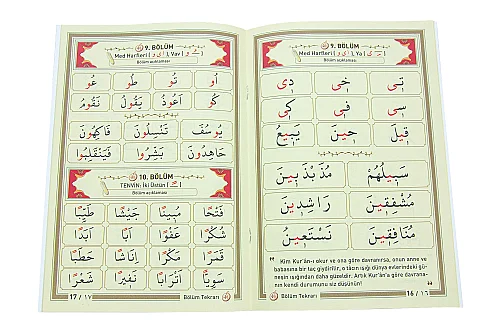 9. BÖLÜM
Med Harfleri ( ا ي و ), Ya ( ـي )
Bölüm açıklaması
تِى خِى دِى
سِى فِى كِى
قِيلَ حِينَ يَبِيعُ
سَبِيلُهُمْ مُذَبْذَبِينَ
مُشْفِقِينَ رَاشِدِينَ
مُنَافِقِينَ نَسْتَعِينُ
Kim Kur'ân-ı okur ve ona göre davranırsa, onun anne ve
babasına bir taç giydirilir, o tâcın ışığı dünya evlerindeki gü-
neşin ışığından daha güzeldir. Artık Kur'ân'a göre davrana-
nın kendi durumunu siz düşünün!
Bölüm Tekrarı
16 / ١٦
9. BÖLÜM
Med Harfleri ( ا ي و ), Vav ( ـو )
Bölüm açıklaması
اُو تُو طُو عُو
كُو اَعُوذُ يَقُولُ نَقُومُ
يُوسُفَ تَنْسِلُونَ فَاكِهُونَ
جَاهِدُونَ بَشِّرُوا فَيَنْقَلِبُوا
10. BÖLÜM
TENVİN: İki Üstün ( ـً )
Bölüm açıklaması
فَتْحًا مُبِينًا جَيْشًا طَيِّبًا
شُكْرًا عَفْوًا اَبًا اَبَدًا
مَكْرًا اِنَاثًا حَطَبًا
سَوِيًّا اَتْرَابًا نَفِيرًا شَعْرًا
Bölüm Tekrarı
17 / ١٧